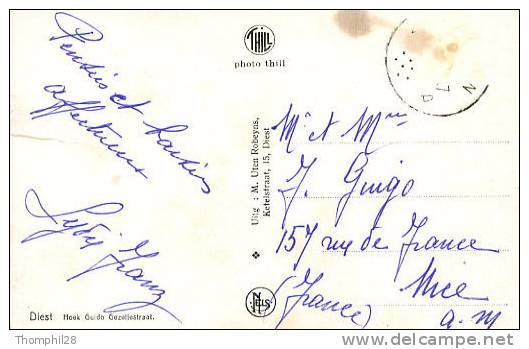 Pensées et baisers
affectueux
THILL
photo thill
Uitg : M. Uten Robeyns,
Ketelstraat, 15, Diest
Mr et Mme
J. Guigo
157 rue de France
Nice
(France) a.m
NELS
Diest Hoek Guido Gezellestraat.
Thomphil28
http://www.delcampe.net